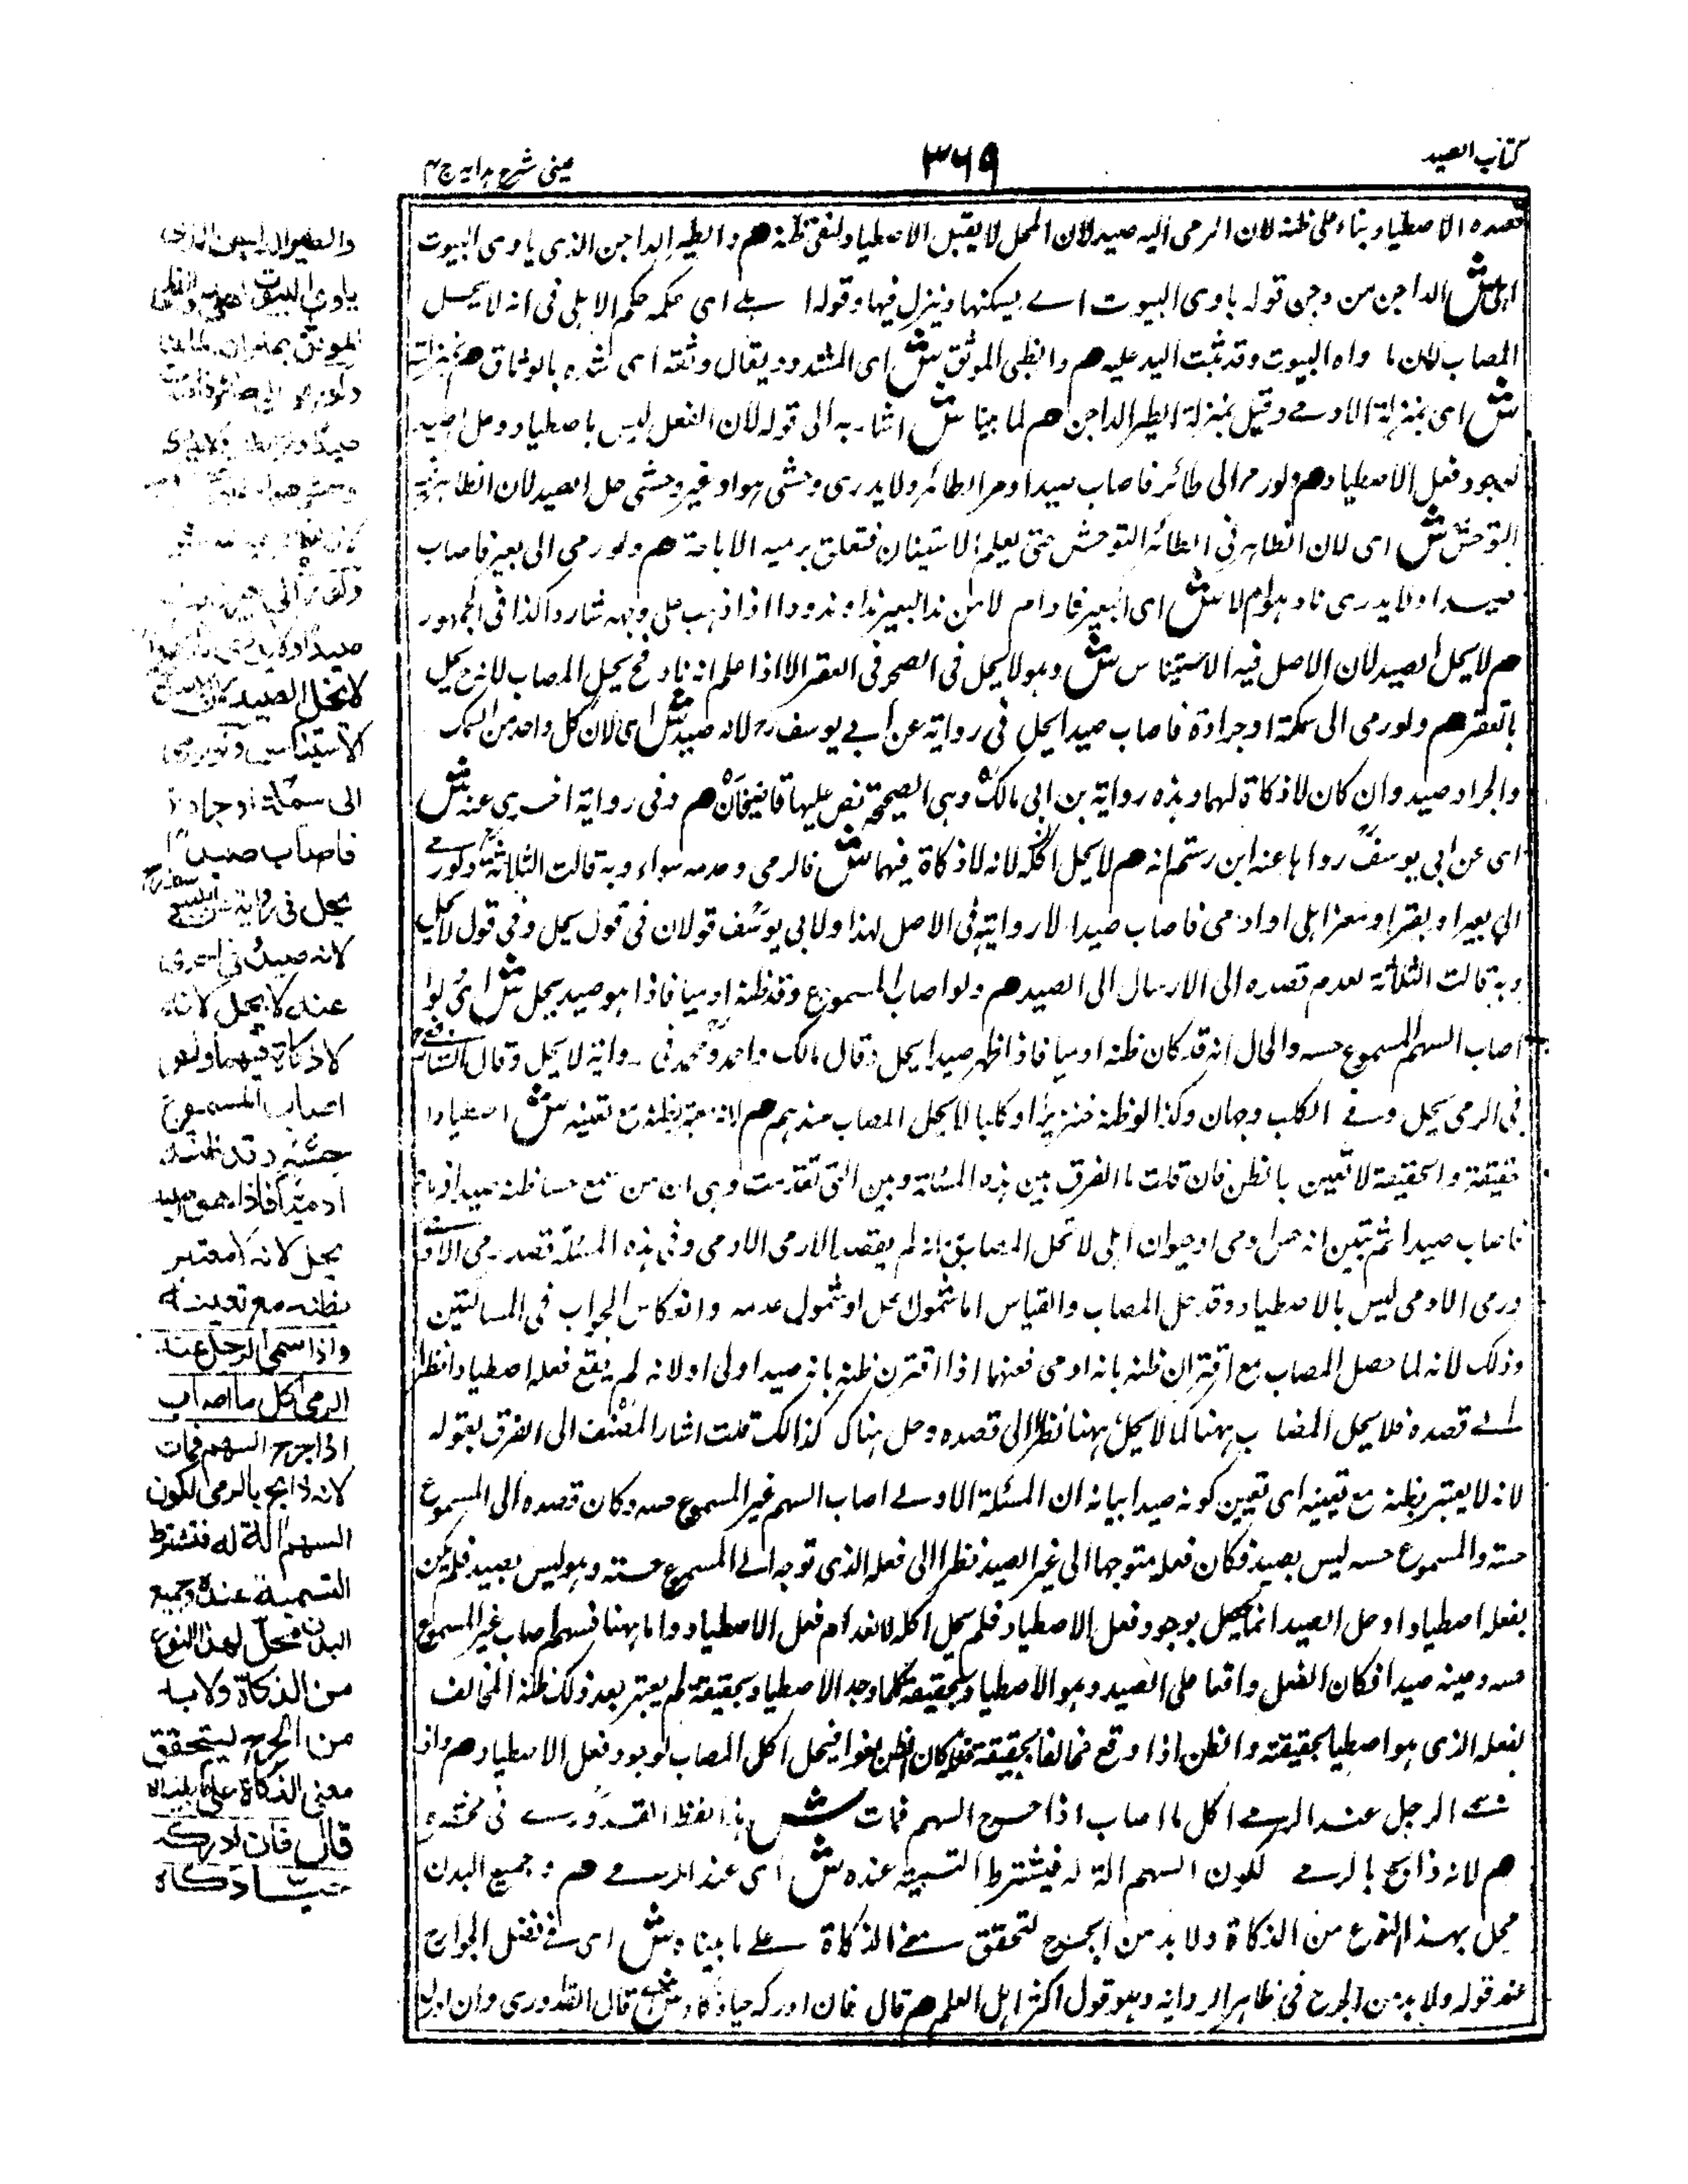 كتاب الصيد
٣٦٩
عينى شرح هدايه ج ٤
قصده الاصطياد بناء على ظنه لان الرمى اليه صيد لان المحل لا يقبل الاصطياد لنفى ظنه هم والطير الداجن الذى ياوى البيوت
اهلى ش الداجن من دجن قوله ياوى البيوت اے يسكنها وينزل فيها وقوله اهلے اى حكمه حكم الاهلى فى انه لا يحل
المصاب لان ماواه البيوت وقد ثبت اليد عليه هم والظبى الموثق ش اى المشدود يقال وثقه اى شده بالوثاق هم بمنزلته
ش اى بمنزلة الادمے وقيل بمنزلة الطير الداجن هم لما بينا ش اشار به الى قوله لان الفعل ليس باصطياد وحل الصيد
لوجود فعل الاصطياد هم ولو رمى الى طائر فاصاب صيدا ومر الطائر ولا يدرى وحشى هو او غير وحشى حل الصيد لان الظاهر فيه
التوحش ش اى لان الظاهر فى الطائر التوحش حتى يعلم الاستيناس فتعلق برميه الاباحة هم ولو رمى الى بعير فاصاب
صيدا ولا يدرى ناد هو ام لا ش اى البعير نادام لا من ند البعير ندا وندودا اذا ذهب على وجهه شاردا كذا فى الجمهور
هم لا يحل الصيد لان الاصل فيه الاستيناس ش وهو لا يحل فى الصحر فى العقر الا اذا علم انه ناد فح يحل المصاب لانه ح يحل
بالعقر هم ولو رمى الى سمكة او جرادة فاصاب صيدا يحل فى رواية عن ابے يوسف رح لانه صيد ش اى لان كل واحد من السمك
والجراد صيد وان كان لا ذكاة لهما وهذه رواية بن ابى مالك وهى الصحيحة نص عليها قاضيخان هم وفى رواية اخرى عنه ش
اى عن ابى يوسف رواها عنه ابن رستم انه هم لا يحل اكله لانه لا ذكاة فيهما ش فالرمى وعدمه سواء وبه قالت الثلاثة ولو رمے
الى بعير او بقر او معز اهلى او ادمى فاصاب صيدا لا رواية فى الاصل لهذا ولابى يوسف قولان فى قول يحل وفى قول لا يحل
وبه قالت الثلاثة لعدم قصده الى الارسال الى الصيد هم ولو اصاب المسموع وقد ظنه ادميا فاذا هو صيد يحل ش اى لو
اصاب السهم المسموع حسه والحال انه قد كان ظنه ادميا فاذا ظهر صيدا يحل وقال مالك واحمد ومحمد فى رواية لا يحل وقال الشافعے
فى الرمى يحل وفے الكلب وجهان وكذا لو ظنه خنزيرا او كلبا لا يحل المصاب عندهم هم لانه لا معتبر بظنه مع تعينه ش اصطيادا
حقيقة والحقيقة لا تعين بالظن فان قلت ما الفرق بين هذه المسئلة وبين التى تقدمت وهى ان من سمع حسا ظنه صيدا فرماه
فاصاب صيدا ثم تبين انه حس ادمى او حيوان اهلى لا تحل المصاب فانه لم يقصد الا رمى الادمى وفى هذه المسئلة قصد رمى الادمے
ورمى الادمى ليس بالاصطياد وقد حل المصاب والقياس اما شمول الحل او شمول عدمه وانعكاس الجواب فى المسالتين
وذلك لانه لما حصل المصاب مع اقتران ظنه بانه ادمى فعنهما اذا اقترن ظنه بانه صيد اولى او لانه لم يقع فعله اصطيادا نظرا
الے قصده فلا يحل المصاب ههنا كما لا يحل ههنا نظرا الى قصده وحل هناك كذالك قلت اشار المصنف الى الفرق بقوله
لانه لا يعتبر بظنه مع تعينه اى تعين كونه صيدا بيانه ان المسئلة الاولے اصاب السهم غير المسموع حسه وكان قصده الى المسموع
حسه والمسموع حسه ليس بصيد فكان فعله متوجها الى غير الصيد نظرا الى فعله الذى توجه الے المسموع حسه وهو ليس بصيد فلم يكن
بفعله اصطيادا وحل الصيد انما يحل بوجود فعل الاصطياد فلم يحل اكله لانعدام فعل الاصطياد واما ههنا فسهم اصاب غير المسموع
حسه وعينه صيدا فكان الفعل واقعا على الصيد وهو الاصطياد بحقيقته فلما وجد الاصطياد بحقيقته لم يعتبر بعد ذلك ظنه المخالف
لفعله الذى هو اصطياد بحقيقته والظن اذا وقع مخالفا لحقيقة فعله كان الظن لغوا فيحل اكل المصاب لوجود فعل الاصطياد هم واذا
سمے الرجل عند الرمے اكل ما اصاب اذا جرح السهم فمات ش هذا لفظ القدورے فى مختصره
هم لانه ذابح بالرمے لكون السهم الة له فيشترط التسمية عنده ش اى عند الرمے هم وجميع البدن
محل بهذا النوع من الذكاة ولا بد من الجرح لتحقق معنے الذكاة علے ما بيناه ش اى فے فصل الجوارح
عند قوله ولا بد من الجرح فى ظاهر الرواية وهو قول اكثر اهل العلم هم قال فان ادركه حيا ذكاه ش اى قال القدورى وان ادرك
والطير الداجن الذى
ياوى البيوت اهلى والظبى
الموثق بمنزلته لما بينا
ولو رمى الى طائر فاصاب
صيدا ومر الطائر ولا يدرى
وحشى هو او غير
لان الظاهر فيه التوحش
ولو رمى الى بعير فاصاب
صيدا ولا يدرى ناد هو ام لا
لا يحل الصيد لان الاصل
الاستيناس ولو رمى
الى سمكة او جرادة
فاصاب صيدا
يحل فى رواية عن ابى يوسف رح
لانه صيد وفى اخرى
عنه لا يحل لانه
لا ذكاة فيهما ولو
اصاب المسموع
حسه وقد ظنه
ادميا فاذا هو صيد
يحل لانه لا معتبر
بظنه مع تعينه
واذا سمى الرجل عند
الرمى اكل ما اصاب
اذا جرح السهم فمات
لانه ذابح بالرمى لكون
السهم الة له فتشترط
التسمية عنده وجميع
البدن محل لهذا النوع
من الذكاة ولا بد
من الجرح ليتحقق
معنى الذكاة على ما بيناه
قال فان ادركه
حيّا ذكاه